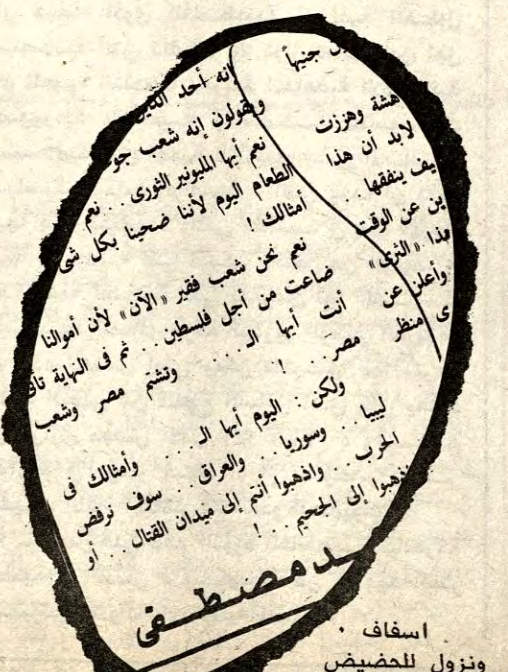 ن جنيهاً
هشة وهززت
لابد أن هذا
يف ينفقها . .
ين عن الوقت
هذا «الثرى»
وأعلن عن
ى منظر
إنه أحد الذين
ويقولون إنه شعب جو
نعم أيها المليونير الثورى . . . نعم
الطعام اليوم لأننا ضحينا بكل شى
أمثالك !
نعم نحن شعب فقير «الآن» لأن أموالنا
ضاعت من أجل فلسطين . . ثم فى النهاية تأتى
أنت أيها الـ . . . . وتشتم مصر وشعب
مصر . . . !
ولكن : اليوم أيها الـ . . . وأمثالك فى
ليبيا . . وسوريا . . والعراق . . سوف نرفض
الحرب . . واذهبوا أنتم إلى ميدان القتال . . أو
ذهبوا إلى الجحيم . . !
ـد مصطفى
اسفاف .
ونزول للحضيض